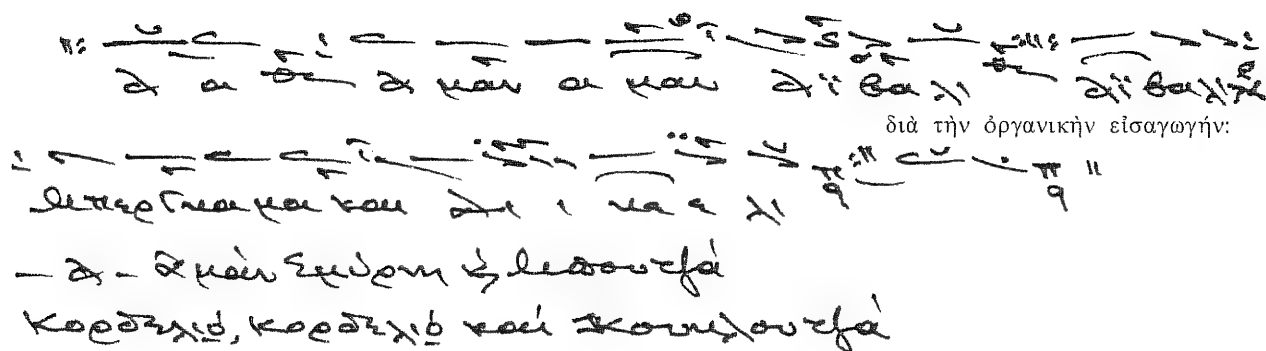 α μαν α μαν Αϊ βα λι Αϊ βα λι
διὰ τὴν ὀργανικὴν εἰσαγωγήν:
Μπερ Γκα μα και Δι ι λι
— Α — Ἀμάν Σμύρνη κ̀ Μπουτζά
Κορδελιό, κορδελιό καί Κουκλουτζά